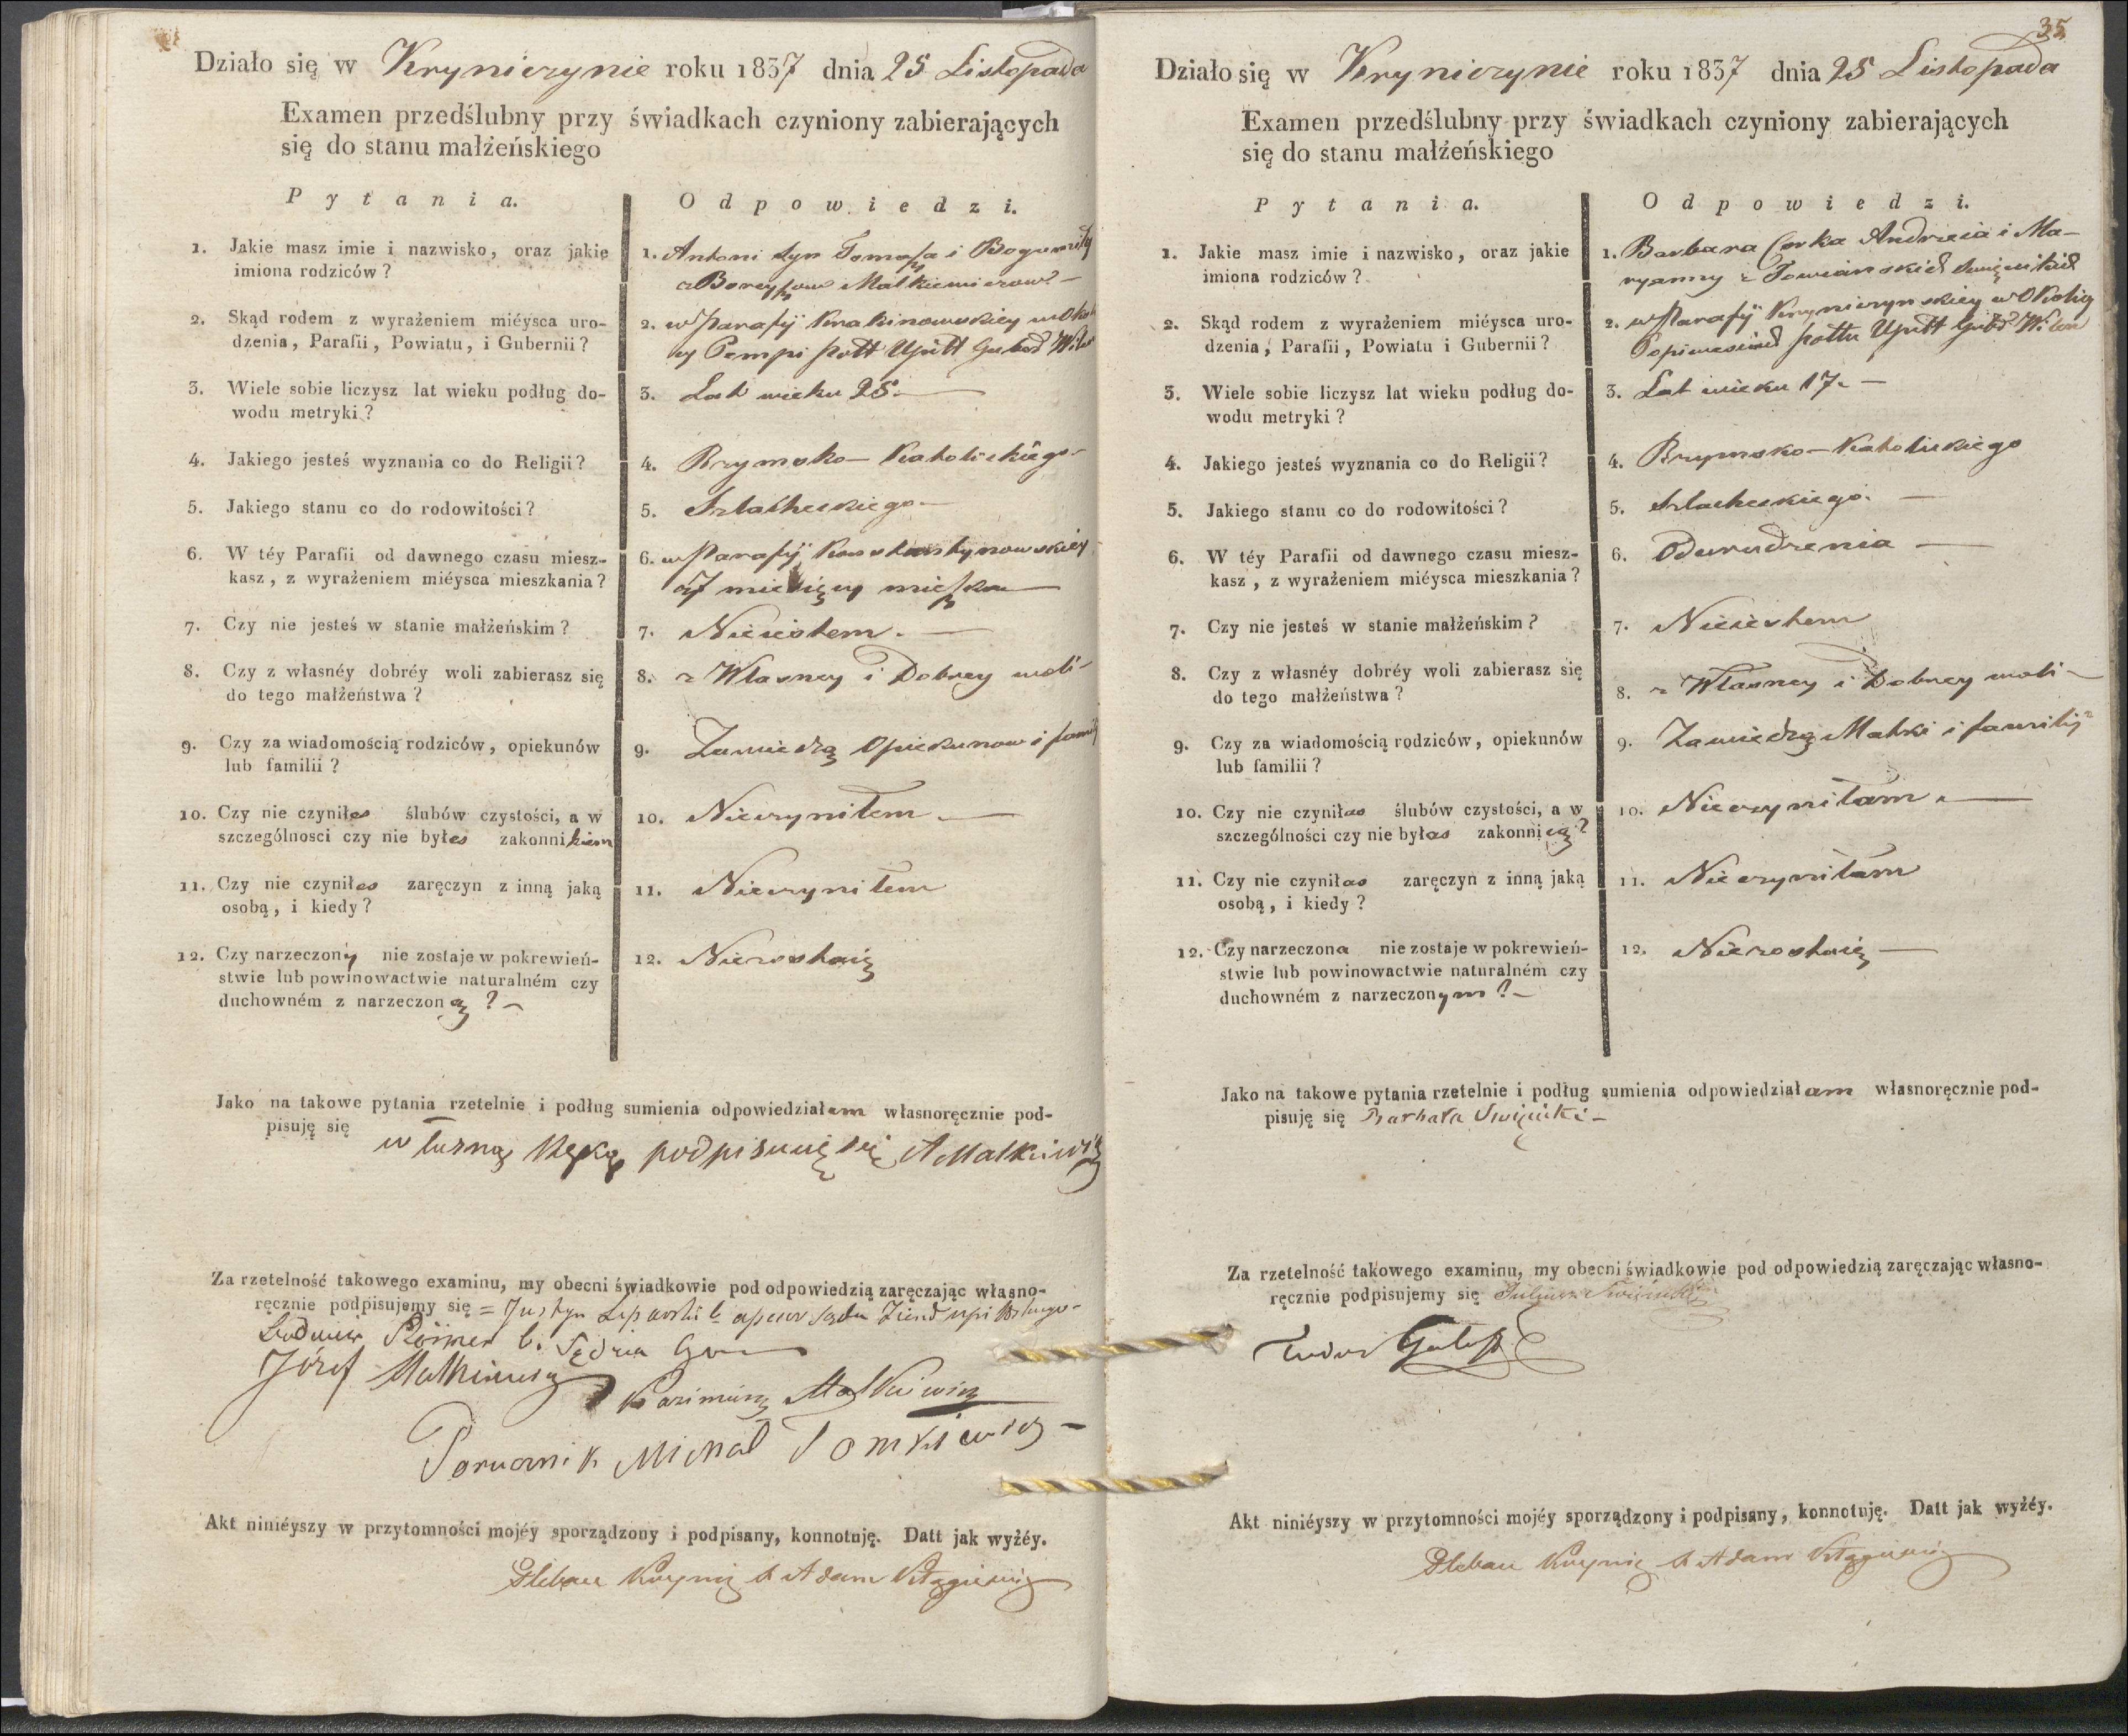 Działo się w Kryniczynie roku 1837 dnia 25 Listopada
Examen przedślubny przy świadkach czyniony zabierających
się do stanu małżeńskiego
Pytania.
Odpowiedzi.
1. Jakie masz imie i nazwisko, oraz jakie
imiona rodziców?
1. Antoni syn Tomasza i Bogumiły
z Boreyszow Malkiewiczow
2. Skąd rodem z wyrażeniem miéysca uro-
dzenia, Parafii, Powiatu, i Gubernii?
2. w Parafij Krakinowskiey w Okoli
cy Pempi pottt Upitt Guber Wilen
3. Wiele sobie liczysz lat wieku podług do-
wodu metryki?
3. Lat wieku 25. —
4. Jakiego jesteś wyznania co do Religii?
4. Rzymsko-Katolickiego-
5. Jakiego stanu co do rodowitości?
5. Szlacheckiego-
6. W téy Parafii od dawnego czasu miesz-
kasz, z wyrażeniem miéysca mieszkania?
6. w Parafij Konstantynowskiey
od miesięcy mieszkam
7. Czy nie jesteś w stanie małżeńskim?
7. Nieiestem. —
8. Czy z własnéy dobréy woli zabierasz się
do tego małżeństwa?
8. z Własney i Dobrey woli-
9. Czy za wiadomością rodziców, opiekunów
lub familii?
9. Zawiedzą Opiekunow i famij
10. Czy nie czyniłes ślubów czystości, a w
szczególnosci czy nie byłes zakonnikiem
10. Nieczyniłem. —
11. Czy nie czyniłes zaręczyn z inną jaką
osobą, i kiedy?
11. Nieczyniłem
12. Czy narzeczony nie zostaje w pokrewień-
stwie lub powinowactwie naturalném czy
duchowném z narzeczoną? -
12. Niezostaię
Jako na takowe pytania rzetelnie i podług sumienia odpowiedziałem własnoręcznie pod-
pisuję się
własną Ręką podpisuuię się A Malkiewicz
Za rzetelność takowego examinu, my obecni świadkowie pod odpowiedzią zaręczając własno-
ręcznie podpisujemy się = Justyn
Ludwik Römer b. Sędzia
Józef Malkiewicz
Kazimierz Malkiewicz
Porucznik Michał Tomkiewicz -
Akt niniéyszy w przytomności mojéy sporządzony i podpisany, konnotuję. Datt jak wyźéy.
Pleban Krynic X Adam
35
Działo się w Kryniczynie roku 1837 dnia 25 Listopada
Examen przedślubny przy świadkach czyniony zabierających
się do stanu małżeńskiego
Pytania.
Odpowiedzi.
1. Jakie masz imie i nazwisko, oraz jakie
imiona rodziców?
1. Barbara Corka Andrzeia i Ma-
ryanny z Towiańskich Swięcickich
2. Skąd rodem z wyrażeniem miéysca uro-
dzenia, Parafii, Powiatu i Gubernii?
2. w Parafij Kryniczynskiey w Okolicy
pottu Upitt Guber Wilen
3. Wiele sobie liczysz lat wieku podług do-
wodu metryki?
3. Lat wieku 17. —
4. Jakiego jesteś wyznania co do Religii?
4. Rzymsko-Katolickiego
5. Jakiego stanu co do rodowitości?
5. Szlacheckiego. —
6. W téy Parafii od dawnego czasu miesz-
kasz, z wyrażeniem miéysca mieszkania?
6. Odurodzenia —
7. Czy nie jesteś w stanie małżeńskim?
7. Nieiestem
8. Czy z własnéy dobréy woli zabierasz się
do tego małżeństwa?
8. z Własney i Dobrey woli-
9. Czy za wiadomością rodziców, opiekunów
lub familii?
9. Zawiedzą Matki i familij
10. Czy nie czyniłas ślubów czystości, a w
szczególności czy nie byłas zakonnicą?
10. Nieczyniłam. —
11. Czy nie czyniłas zaręczyn z inną jaką
osobą, i kiedy?
11. Nieczyniłam
12. Czy narzeczona nie zostaje w pokrewień-
stwie lub powinowactwie naturalném czy
duchowném z narzeczonym? -
12. Niezostaię —
Jako na takowe pytania rzetelnie i podług sumienia odpowiedziałam własnoręcznie pod-
pisuję się Barbara Swięcicki -
Za rzetelność takowego examinu, my obecni świadkowie pod odpowiedzią zaręczając własno-
ręcznie podpisujemy się
Akt niniéyszy w przytomności mojéy sporządzony i podpisany, konnotuję. Datt jak wyźéy.
Pleban Krynic X Adam